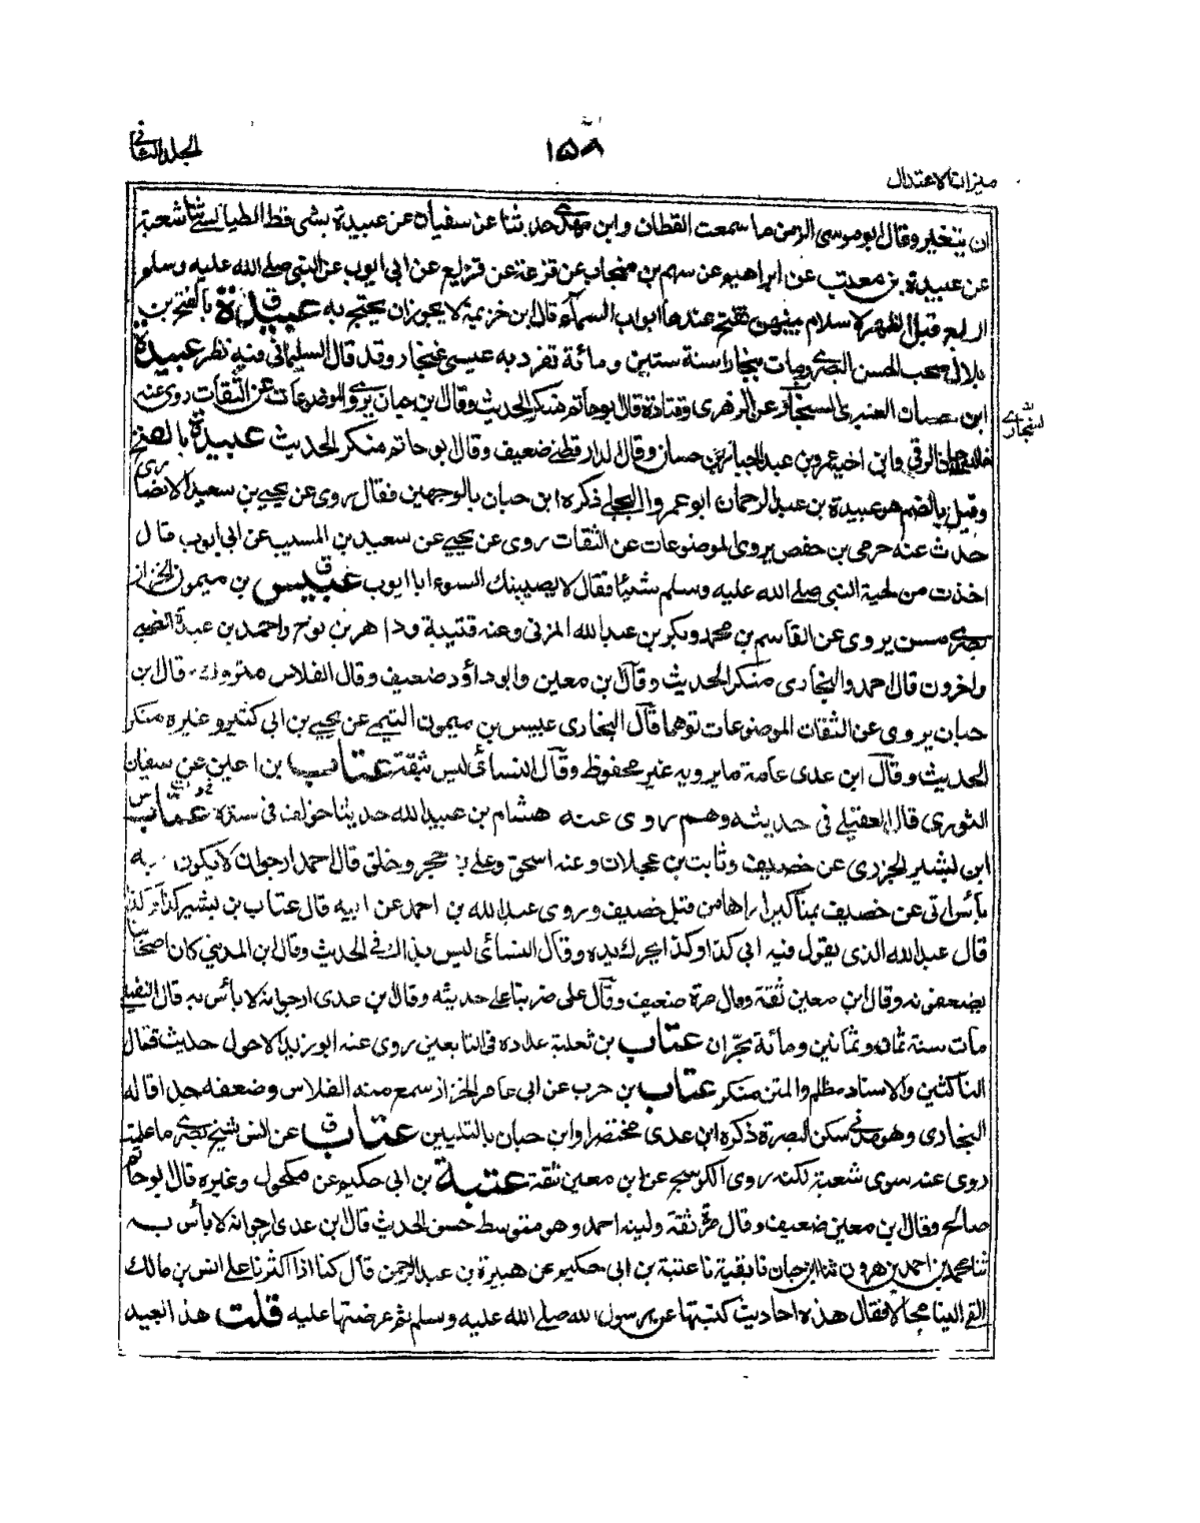 الجلد الثاني
١٥٨
ميزان الاعتدال
ان يتغير وقال ابو موسى الزمن ما سمعت القطان وابن مهدي حدثنا عن سفيان عن عبيدة بشئ قط الطيالسي ثنا شعبة
عن عبيدة بن معتب عن ابراهيم عن سهم بن منجاب عن قزعة عن قرثع عن ابى ايوب عن النبي صلى الله عليه وسلم
اربع قبل الظهر لا سلام بينهن تفتح عندها ابواب السماء قال ابن خزيمة لا يجوز ان يحتج به عبيدة ق بالفتح بن
بلال صاحب الحسن البصري مات ببخارا سنة ستين ومائة تفرد به عيسى غنجار وقد قال السليمانى فيه نظر عبيدة
ابن حسان العنبرى السنجاري عن الزهرى وقتادة قال ابو حاتم منكر الحديث وقال بن حبان يروي الموضوعات عن الثقات روى عنه
خالد بن حيان الرقي وابن اخيه عمرو بن عبد الجبار بن حسان وقال الدارقطني ضعيف وقال ابو حاتم منكر الحديث عبيدة بالفتح
وقيل بالضم هو عبيدة بن عبد الرحمان ابو عمرو البجلي ذكره ابن حبان بالوجهين فقال يروى عن يحيى بن سعيد الانصارى
حدث عنه حرمى بن حفص يروى الموضوعات عن الثقات روى عن يحيى عن سعيد بن المسيب عن ابى ايوب قال
اخذت من لحية النبي صلى الله عليه وسلم شيئا فقال لا يصيبنك السوء ابا ايوب عبيس ق بن ميمون الخزاز
بصري مسن يروى عن القاسم بن محمد وبكر بن عبد الله المزنى وعنه قتيبة وداهر بن نوح واحمد بن عبدة الضبى
واخرون قال احمد والبخارى منكر الحديث وقال بن معين وابو داؤد ضعيف وقال الفلاس متروك قال ابن
حبان يروى عن الثقات الموضوعات توهما قال البخارى عبيس بن ميمون التيمى عن يحيى بن ابى كثير وغيره منكر
الحديث وقال ابن عدى عامة ما يرويه غير محفوظ وقال النسائى ليس بثقة عتاب بن اعين عن سفيان
الثورى قال العقيلى فى حديثه وهم روى عنه هشام بن عبيد الله حديثا خولف فى سنده عتاب
ابن بشير الجزرى عن خصيف وثابت بن عجلان وعنه اسحق وعلي بن حجر وخلق قال احمد ارجو ان لا يكون به
بأس اتى عن خصيف بمناكير اراها من قبل خصيف وروى عبد الله بن احمد عن ابيه قال عتاب بن بشير كذا وكذا
قال عبد الله الذى يقول فيه ابى كذا وكذا يحرك يده وقال النسائى ليس بذاك فى الحديث وقال ابن المدينى كان اصحابنا
يضعفونه وقال ابن معين ثقة وقال مرة ضعيف وقال على ضربنا على حديثه وقال بن عدى ارجو انه لا بأس به قال النفيلى
مات سنة ثمان وثمانين ومائة بحران عتاب بن ثعلبة عداده فى التابعين روى عنه ابو زيد الاحول حديث قتال
الناكثين والاسناد مظلم والمتن منكر عتاب بن حرب عن ابى عامر الخزاز سمع منه الفلاس وضعفه جدا قاله
البخارى وهو مدني سكن البصرة ذكره ابن عدى مختصرا وابن حبان بالتليين عتاب ق عن انس شيخ بصري ما علمت
روى عنه سوى شعبة لكنه روى الكوسج عن ابن معين ثقة عتبة بن ابى حكيم عن مكحول وغيره قال ابو حاتم
صالح وقال بن معين ضعيف وقال مرة ثقة ولينه احمد وهو متوسط حسن الحديث قال بن عدى ارجو انه لا بأس به
ثنا محمد بن احمد بن هرون ثنا نا بقية نا عتبة بن ابى حكيم عن هبيرة بن عبد الرحمن قال كنا اذا اكثرنا على انس بن مالك
القى الينا مجالا فقال هذه احاديث كتبتها عن رسول الله صلى الله عليه وسلم ثم عرضتها عليه قلت هذا بعيد